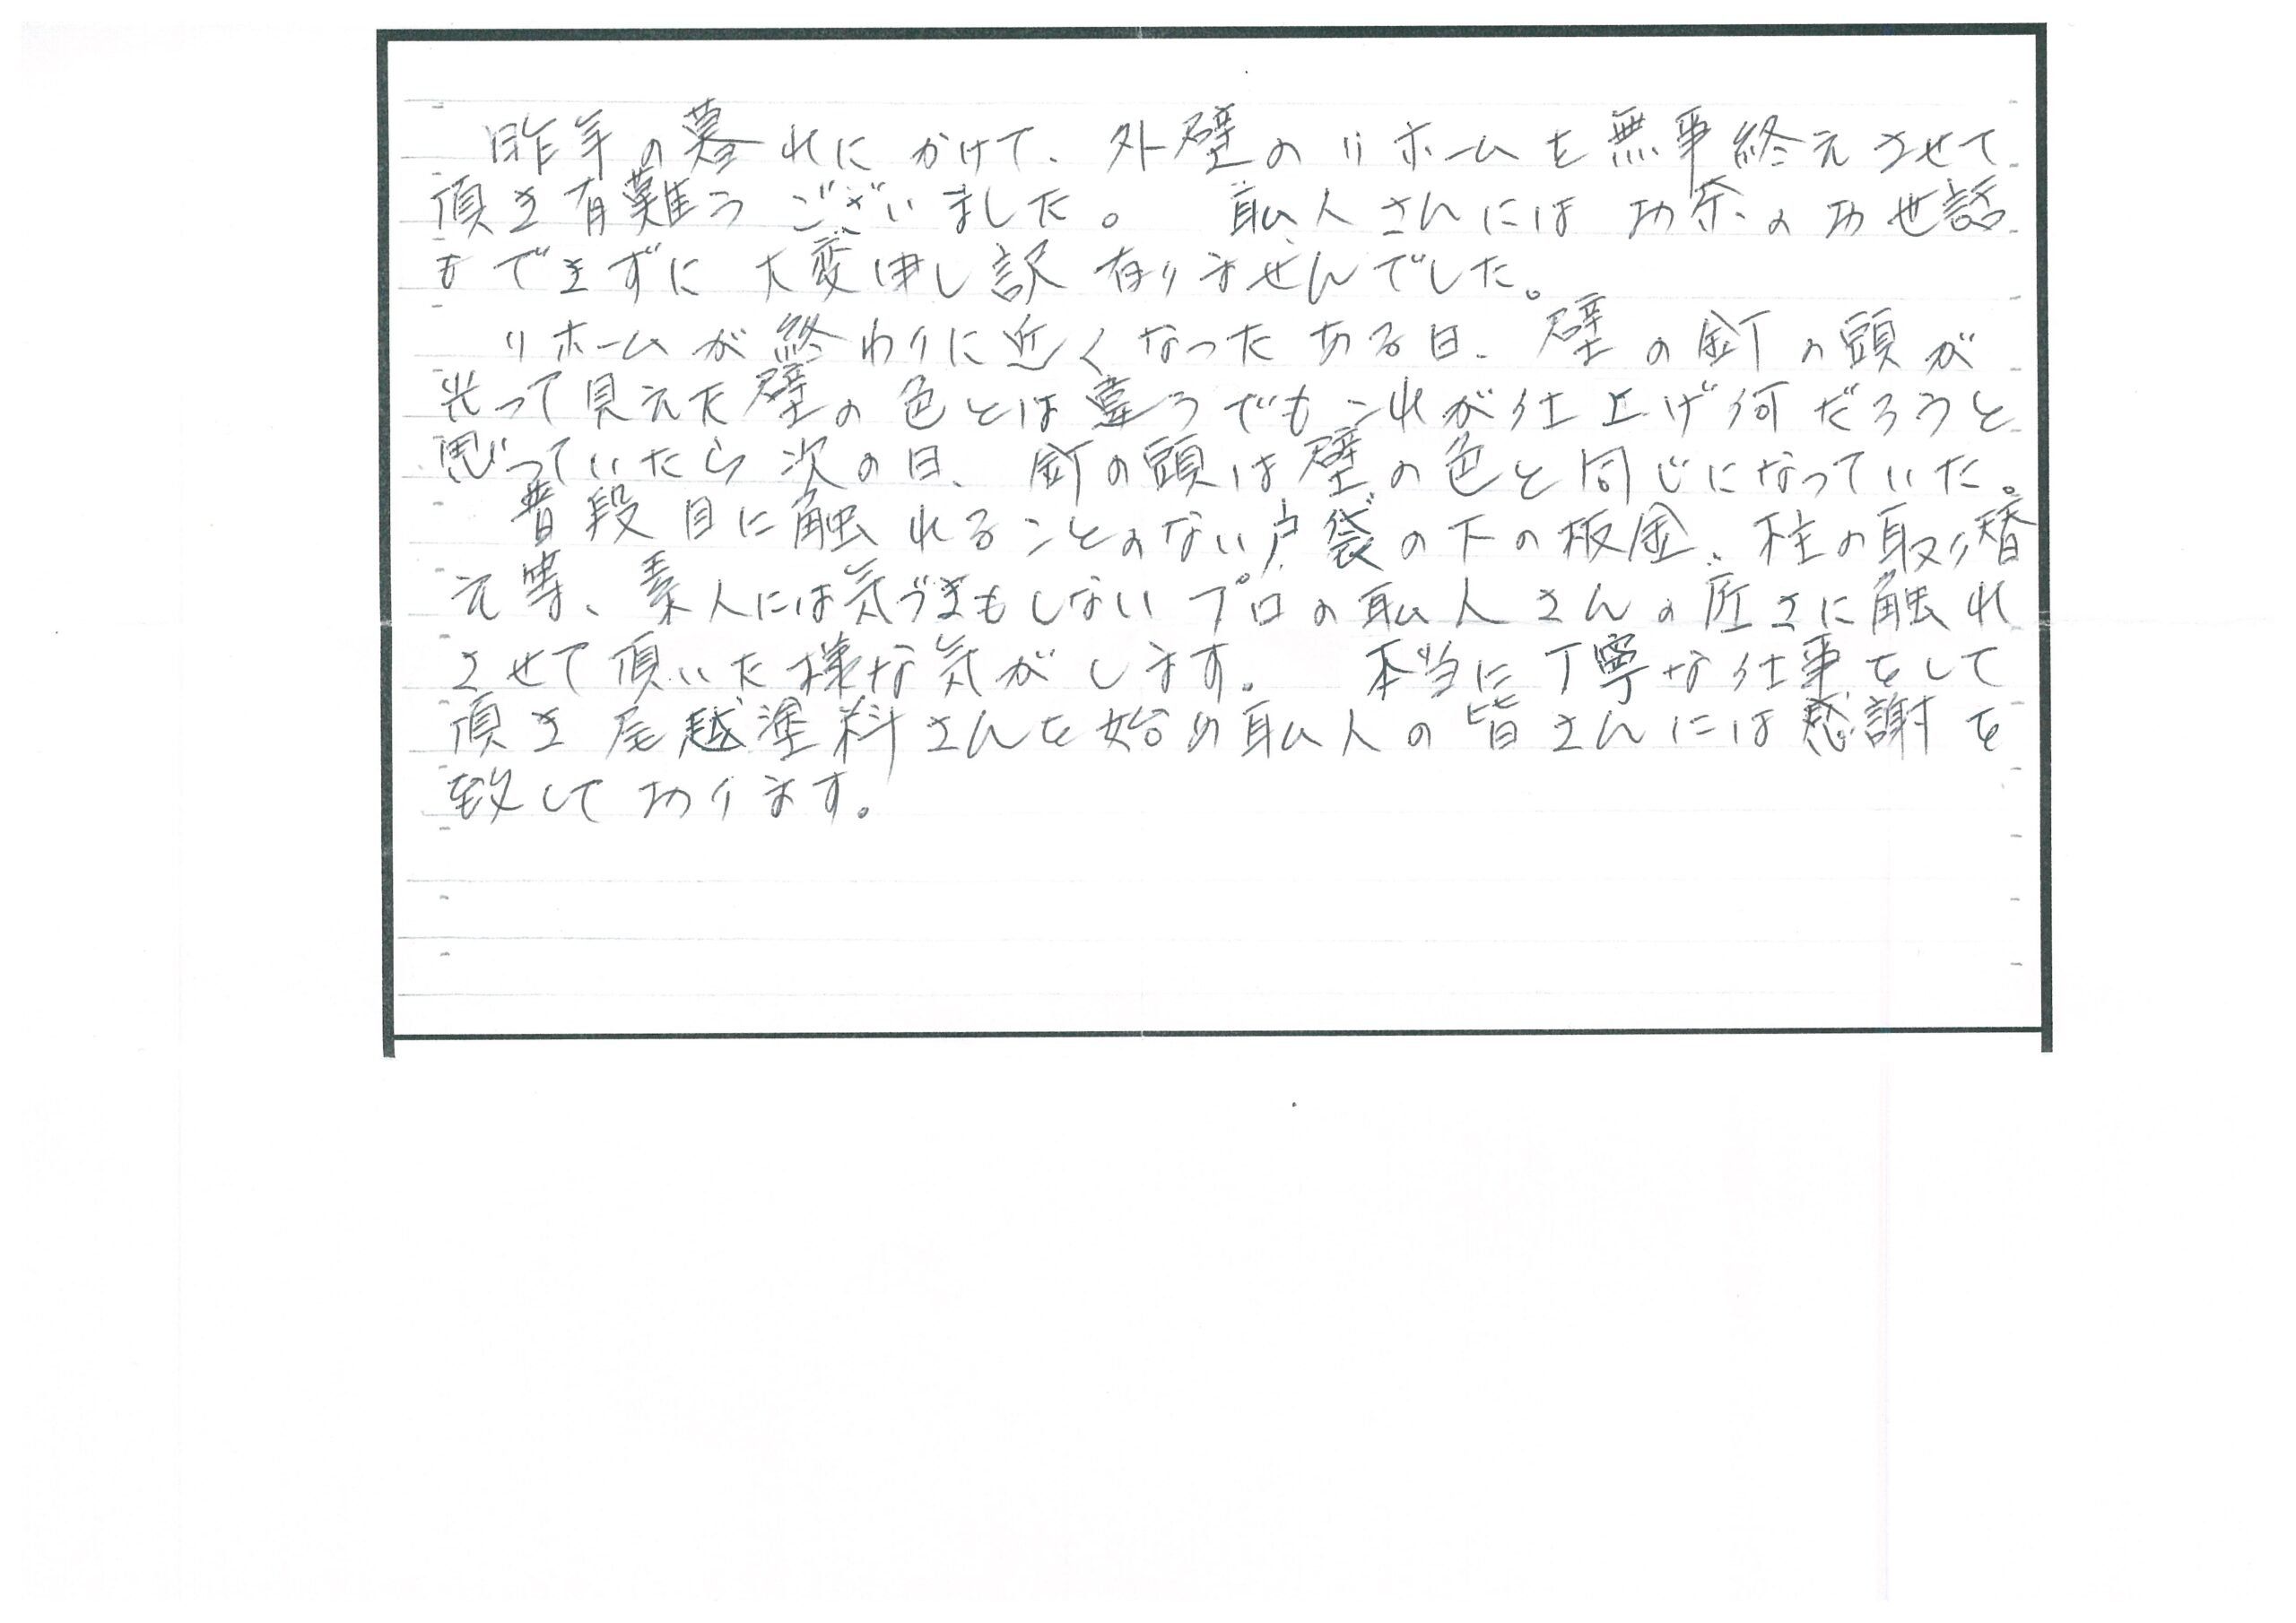 昨年の暮れにかけて、外壁のリホームを無事終えさせて
頂き有難うございました。 职人さんにはお茶のお世話
もできずに大変申し訳有りませんでした。
リホームが終わりに近くなったある日、壁の釘の頭が
光って見えた壁の色とは違うでもこれが仕上げ何だろうと
思っていたら次の日、釘の頭は壁の色と同じになっていた。
普段目に触れることのない戸袋の下の板金、柱の取り替
え等、素人には気づきもしないプロの职人さんの匠さに触れ
させて頂いた様な気がします。 本当に丁寧な仕事をして
頂き尾越塗料さんを始め职人の皆さんには感謝を
致しております。